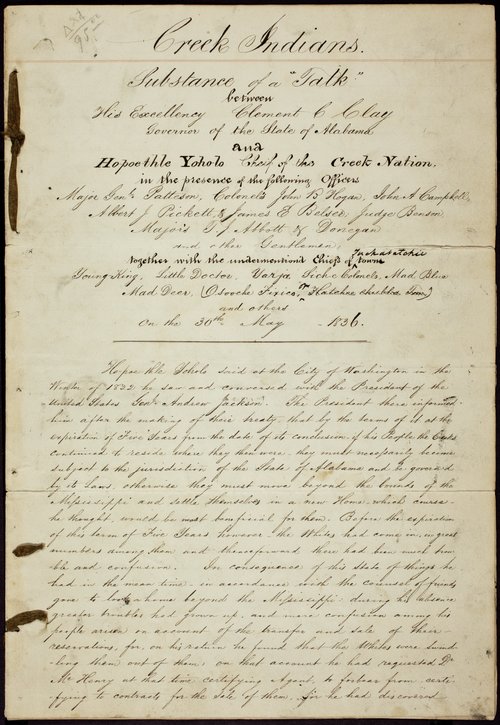 Creek Indians.
Substance of a "Talk"
between
His Excellency Clement C Clay
Governor of the State of Alabama
and
Hopoethle Yoholo Chief of the Creek Nation.
in the presence of the following Officers
Major Genl. Patteson, Colonels John B Hogan, John A Campbell,
Albert J Pickett & James E Belser, Judge Benson
Majors Abbott & Donegan
and other Gentlemen,
together with the undermentioned Chiefs of Tuckabatchie town
Young King, Little Doctor, Mad Blue
Mad Deer,
and others
On the 30th May 1836.
Hopoethle Yoholo said at the City of Washington in the
Winter of 1832 he saw and conversed with the President of the
United States Genl. Andrew Jackson. The President then informed
him after the making of their treaty, that by the terms of it at the
expiration of Five Years from the date of its conclusion if his People the Creeks
continued to reside where they then were, they must necessarily become
subject to the jurisdiction of the State of Alabama and be governed
by its Laws, otherwise they must move beyond the bounds of the
Mississippi and settle themselves in a new Home, which course
he thought would be most beneficial for them. Before the expiration
of this term of Five Years however the Whites had come in, in great
numbers among them and thenceforward there had been much trou-
ble and confusion. In consequence of this State of things he
had in the mean time in accordance with the counsel of friends
gone to look a home beyond the Mississippi during his absence
greater troubles had grown up, and more confusion among his
people arisen on account of the transfer and sale of their
reservations, for, on his return he found that the Whites were swind-
ling them out of them, on that account he had requested Dr.
Mc Henry at that time certifying Agent, to forbear from certi-
fying to contracts for the sale of them, for he had discovered